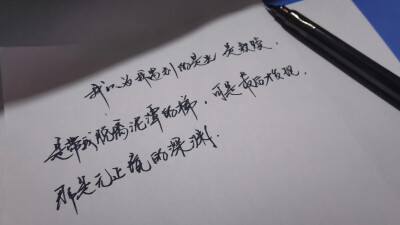 我以为我遇到的是光 是救赎,
是带我脱离泥潭的梯,可是最后才发现,
那是无止境的深渊.